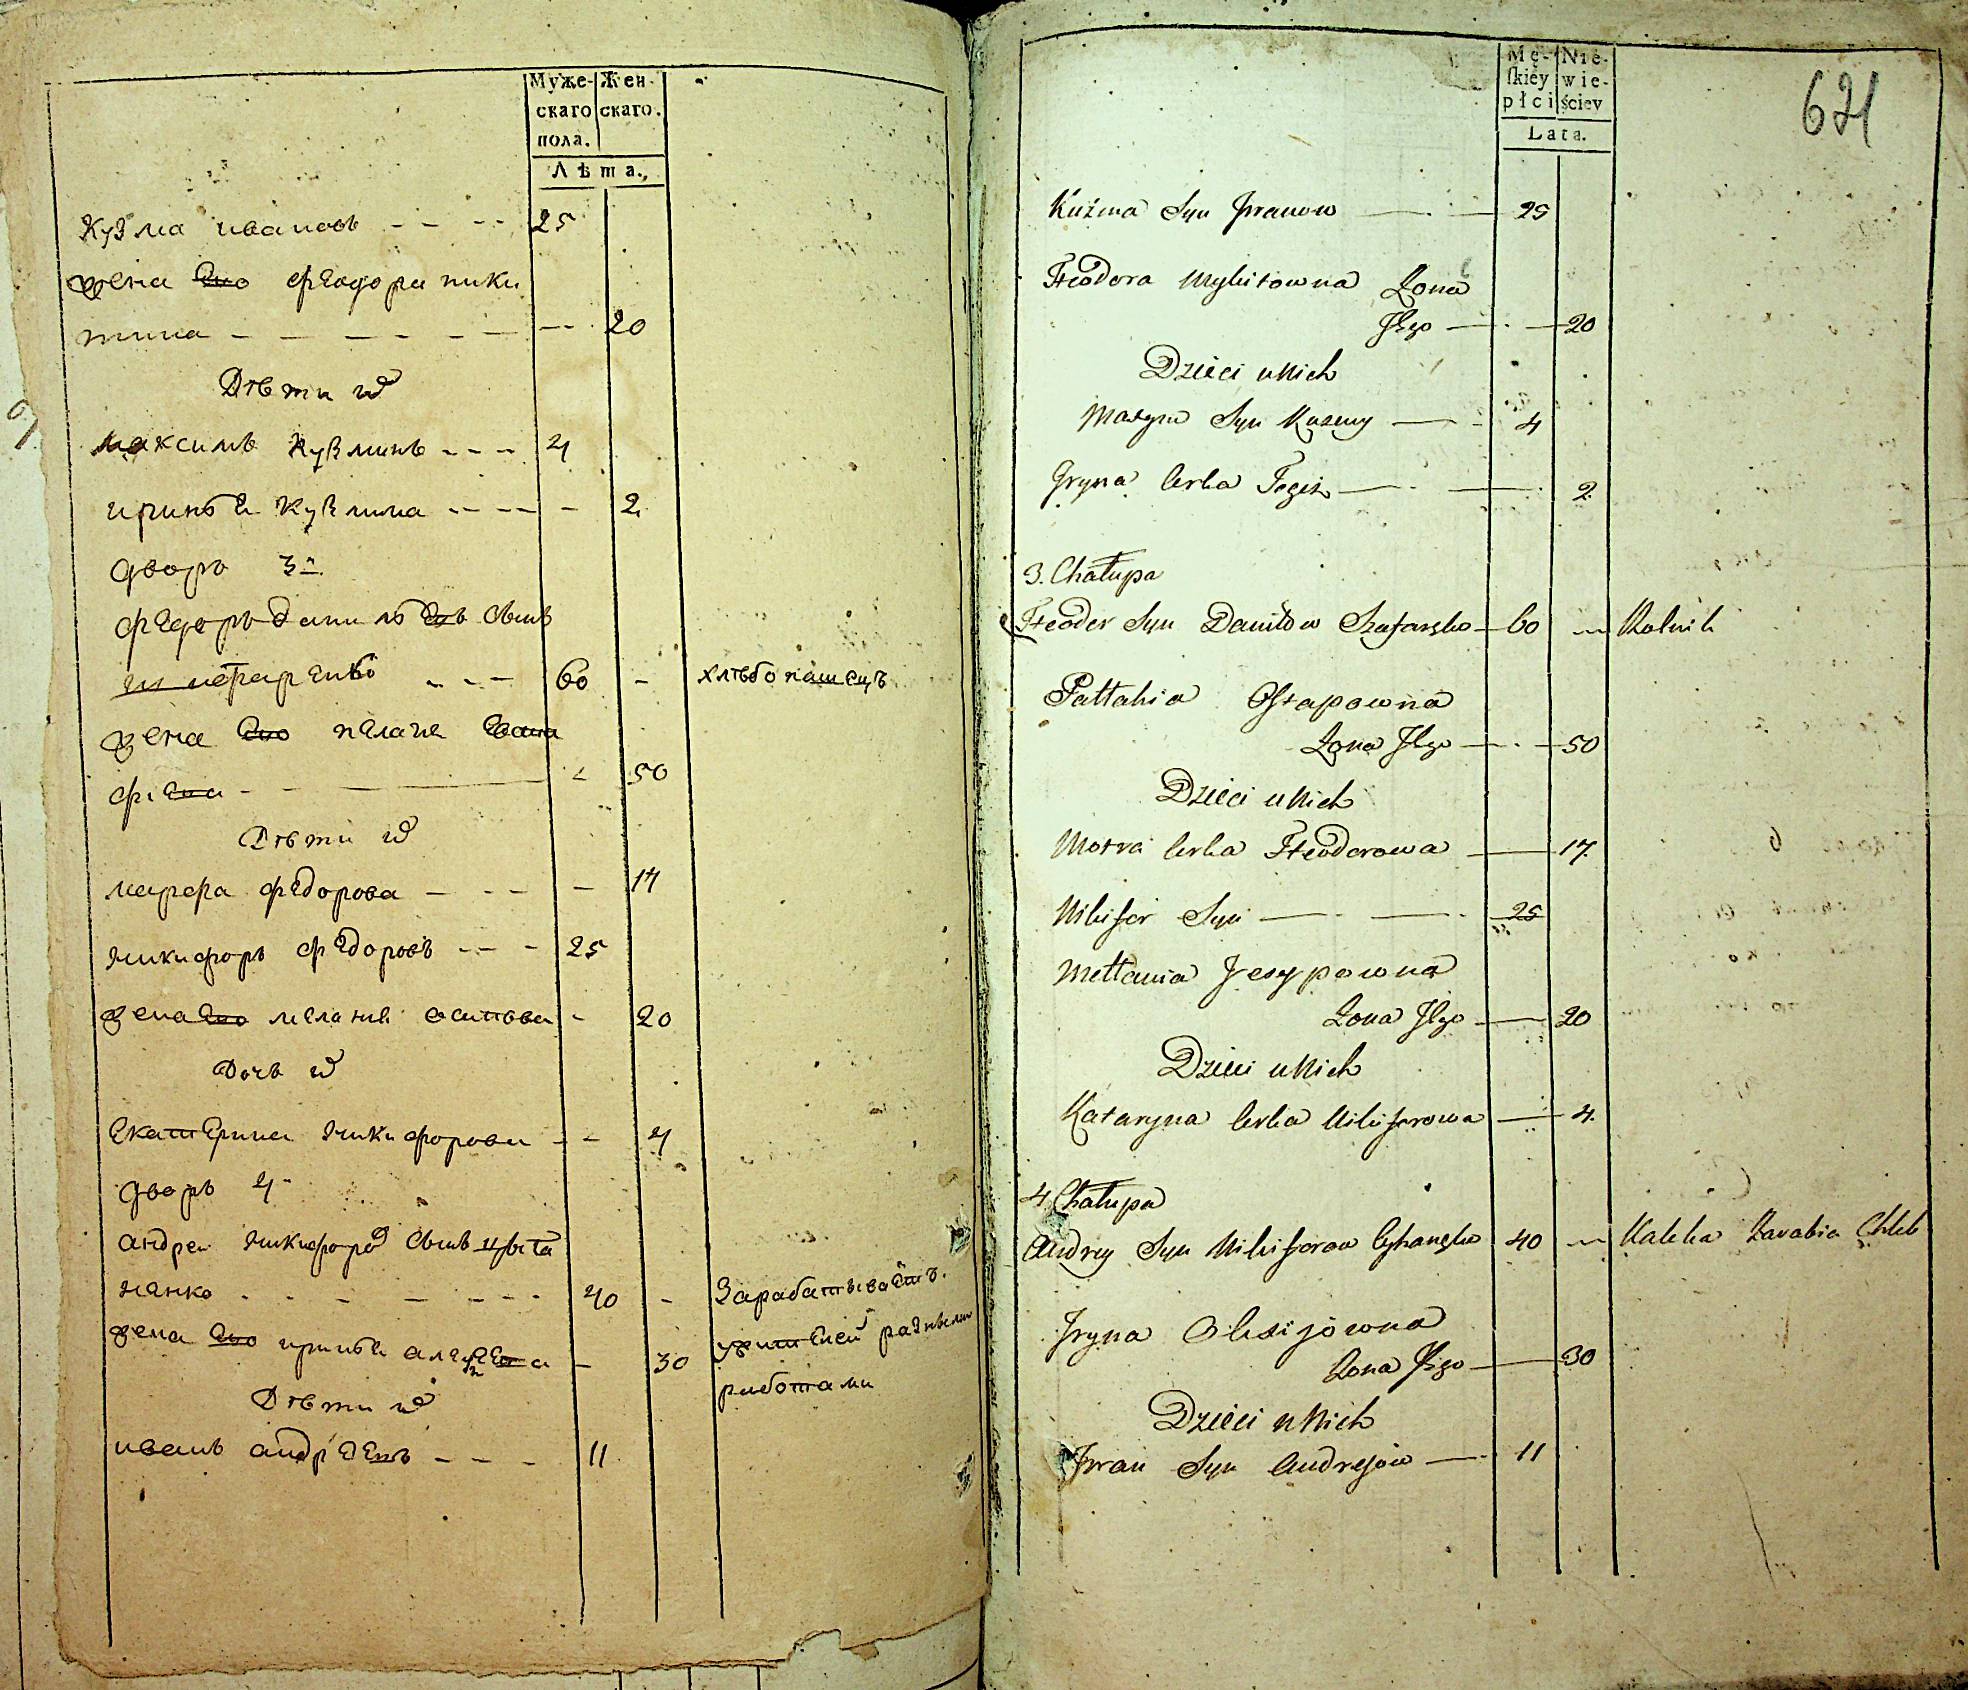 Муже-
скаго
пола.
Жен-
скаго.
Лѣта.
Кузма ивановъ 25
жена его феодора ники
тина 20
Дѣти их
максимъ Кузминъ 4
иринѣя Кузмина 2
дворъ 3й
федоръ данилѣевъ сынъ
60 хлѣбопашецъ
жена его пелагея
50
Дѣти их
марфа федорова 17
никифоръ федоровъ 25
жена его мелания осипова 20
Дочь их
Екатерина никифорова 4
дворъ 4й
андреи никифоров сынъ цыга
нянко 40 Зарабатываетъ
жена его иринѣя 30 разными
работами
Дѣти их
иванъ андреевъ 11
Mę-
skiey
płci
Nie-
wie-
ściey
Lata.
621
Kuźma Syn Jwanow 25
Fteodora Mykitowna Żona
Jego 20
Dzieci u Nich
Maxym Syn Kuzmy 4
Jryna Curka Tegoż 2
3. Chałupa
Fteoder Syn Daniłow Szafaręko 60 Rolnik
Pałłahia Ostapowna
Żona Jego 50
Dzieci u Nich
Motra Curka Fteodorowa 17
Nikifor Syn 25
Mełłania Jesypowna
Żona Jego 20
Dzieci u Nich
Kataryna Curka Nikiforowa 4
4. Chałupa
Andrey Syn Nikiforow Cyhanęko 40 Kaleka Zarabia Chleb
Jryna Olexijowna
Żona Jego 30
Dzieci u Nich
Jwan Syn Andrejów 11